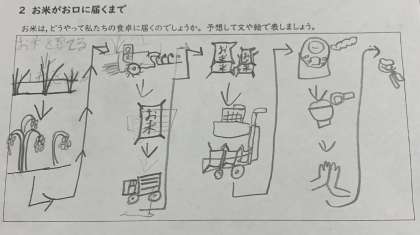 2 お米がお口に届くまで
お米は、どうやって私たちの食卓に届くのでしょうか。予想して文や絵で表しましょう。
お米
お米